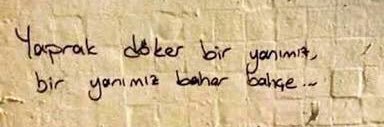 Yaprak döker bir yanımız,
bir yanımız bahar bahçe...